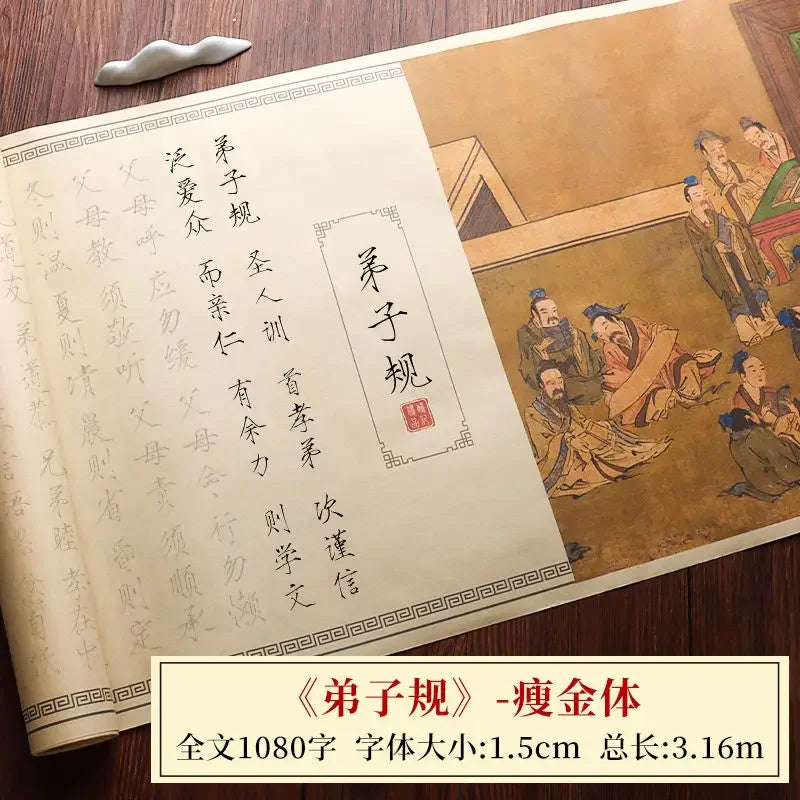 弟子规
弟子规 圣人训 首孝弟 次谨信
泛爱众 而亲仁 有余力 则学文
父母呼 应勿缓 父母命 行勿懒
父母教 须敬听 父母责 须顺承
冬则温 夏则凊 晨则省 昏则定
道友 弟道恭 兄弟睦 孝在中
言语忍 忿自泯
《弟子规》-瘦金体
全文1080字 字体大小:1.5cm 总长:3.16m